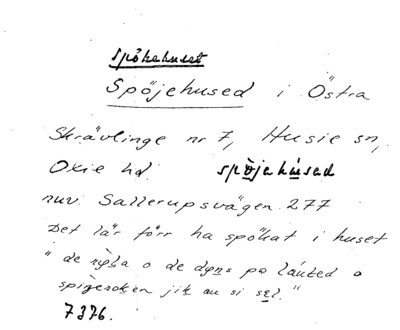 spökehuset
Spöjehused i Östra
Skrävlinge nr 7, Husie sn,
Oxie hd. spöjehúsed
nuv. Sallerupsvägen 277
Det lär förr ha spökat i huset
" de o de på láuted o
jik au si sel."
7376.